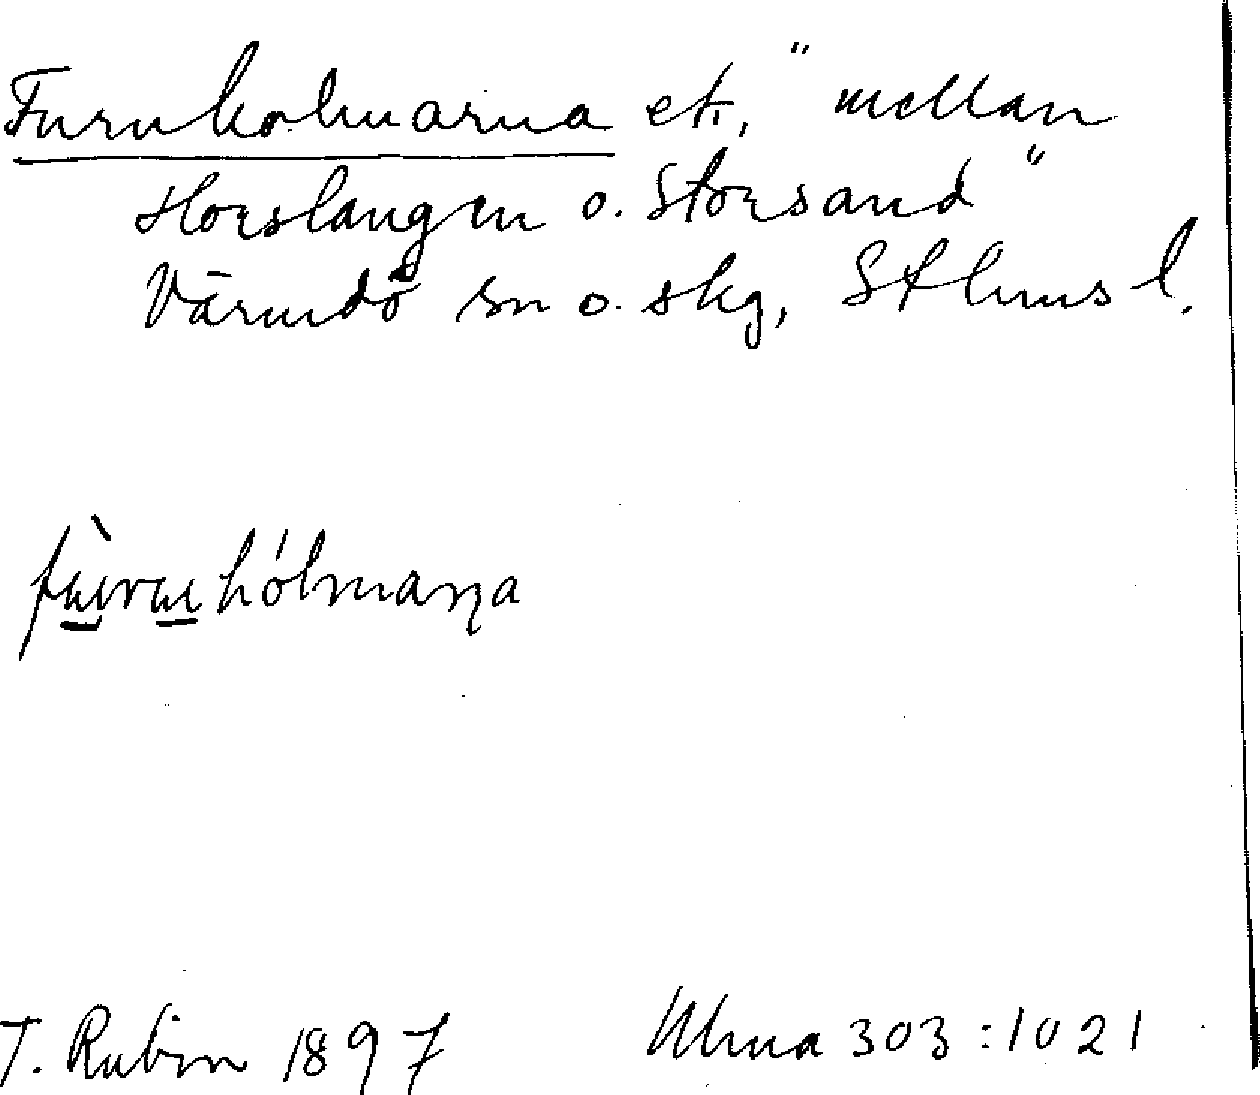 Furuholmarna ek., "mellan
Horslangen o. Storsand"
Värmdö sn o. skg, Sthlms l.
hólmaṇa
T. Rubin 1897 Ulma 303:1021